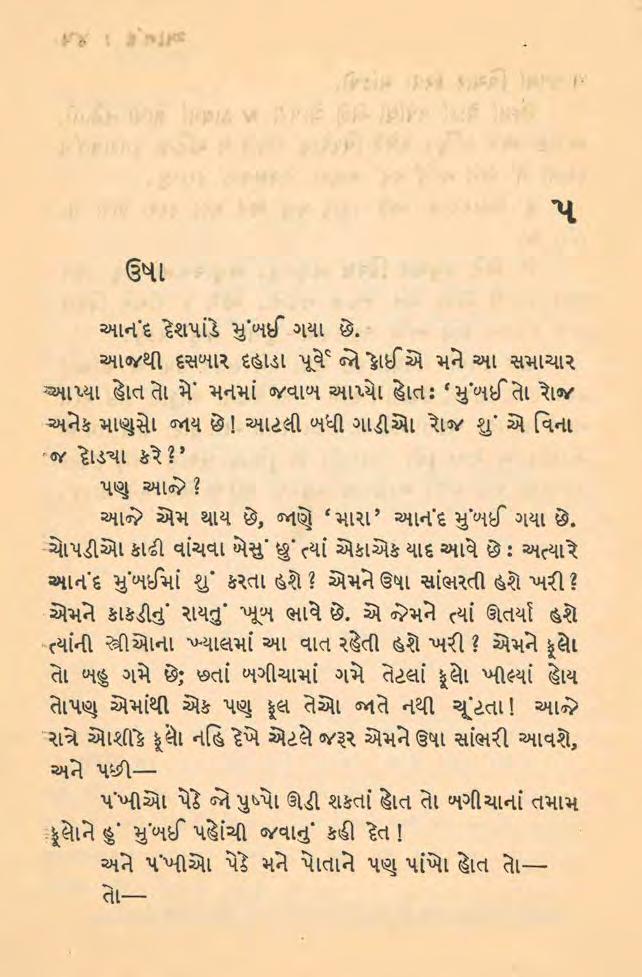 ૫
ઉષા
આનંદ દેશપાંડે મુંબઈ ગયા છે.
આજથી દસબાર દહાડા પૂર્વે જો કોઈએ મને આ સમાચાર
આપ્યા હોત તો મેં મનમાં જવાબ આપ્યો હોત: ‘મુંબઈ તો રોજ
અનેક માણસો જાય છે! આટલી બધી ગાડીઓ રોજ શું એ વિના
જ દોડ્યા કરે?’
પણ આજે?
આજે એમ થાય છે, જાણે ‘મારા’ આનંદ મુંબઈ ગયા છે.
ચોપડીઓ કાઢી વાંચવા બેસું છું ત્યાં એકાએક યાદ આવે છે: અત્યારે
આનંદ મુંબઈમાં શું કરતા હશે? એમને ઉષા સાંભરતી હશે ખરી?
એમને કાકડીનું રાયતું ખૂબ ભાવે છે. એ જેમને ત્યાં ઊતર્યા હશે
ત્યાંની સ્ત્રીઓના ખ્યાલમાં આ વાત રહેતી હશે ખરી? એમને ફૂલો
તો બહુ ગમે છે; છતાં બગીચામાં ગમે તેટલાં ફૂલો ખીલ્યાં હોય
તોપણ એમાંથી એક પણ ફૂલ તેઓ જાતે નથી ચૂંટતા! આજે
રાત્રે ઓશીકે ફૂલો નહિ દેખે એટલે જરૂર એમને ઉષા સાંભરી આવશે,
અને પછી—
પંખીઓ પેઠે જો પુષ્પો ઊડી શકતાં હોત તો બગીચાનાં તમામ
ફૂલોને હું મુંબઈ પહોંચી જવાનું કહી દેત!
અને પંખીઓ પેઠે મને પોતાને પણ પાંખો હોત તો—
તો—